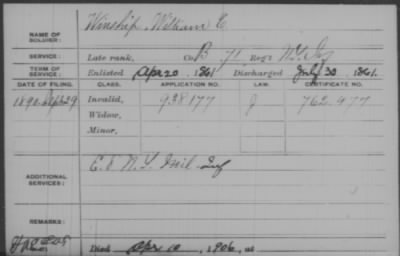 NAME OF SOLDIER: Winship, William E.
SERVICE: Late rank, Co. B, 71 Reg't N.Y. Inf
TERM OF SERVICE: Enlisted Apr 20, 1861 Discharged July 30, 1861.
DATE OF FILING. CLASS. APPLICATION NO. LAW. CERTIFICATE NO.
1890 Sept 29 Invalid, 938177 J 762.977
Widow,
Minor,
ADDITIONAL SERVICES: E. 8 N.Y. Mil. Inf
REMARKS:
Died Apr 10, 1906, at